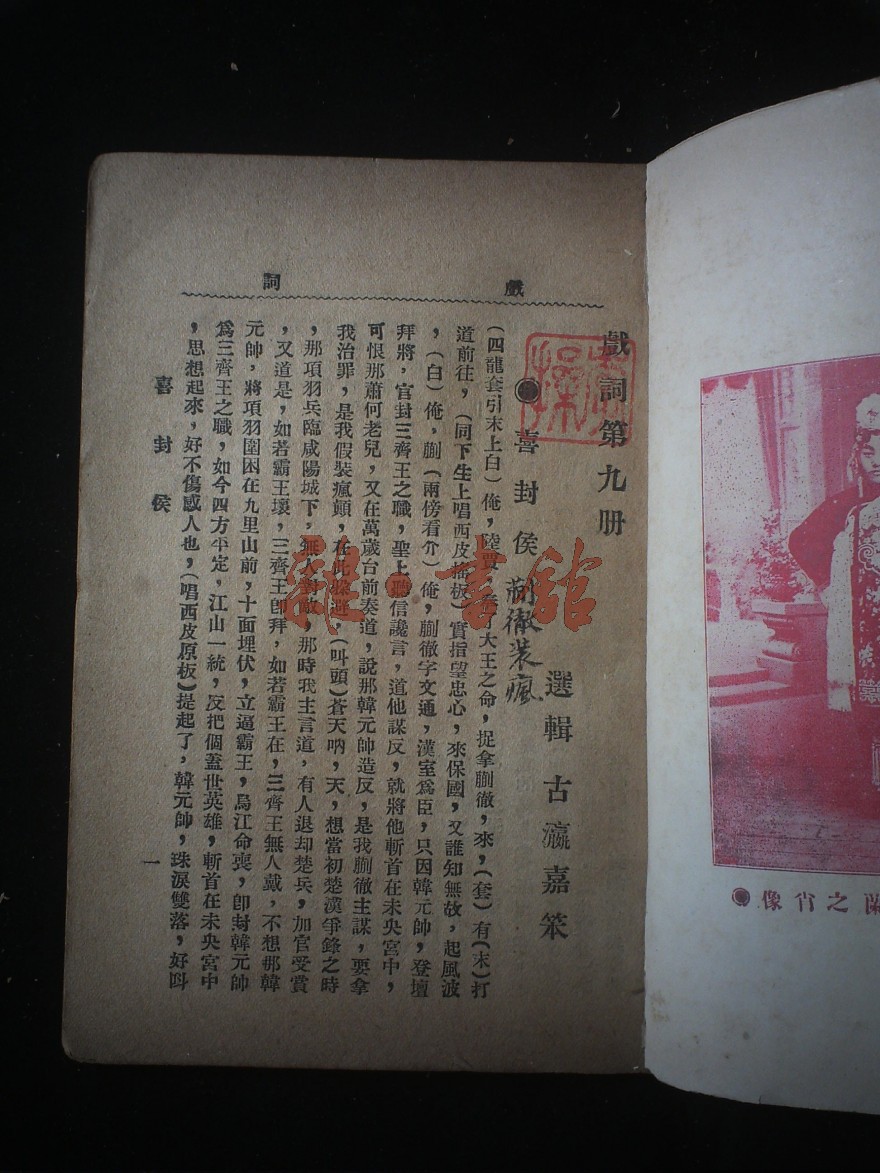 戲詞
戲詞第九册
選輯古瀛嘉笨
喜封侯 蒯徹裝瘋
(四龍套引末上白)俺,陸賈,奉了大王之命,捉拿蒯徹,來,(套)有(末)打
道前往,(同下生上唱西皮搖板)實指望忠心,來保國,又誰知無故,起風波
,(白)俺,蒯(兩傍看介)俺,蒯徹字文通,漢室爲臣,只因韓元帥,登壇
拜將,官封三齊王之職,聖上聽信讒言,道他謀反,就將他斬首在未央宮中,
可恨那蕭何老兒,又在萬歲台前奏道,說那韓元帥造反,是我蒯徹主謀,要拿
我治罪,是我假裝瘋顛,在此躲避,(叫頭)蒼天吶,天,想當初楚漢爭鋒之時
,那項羽兵臨咸陽城下,無人對敵,那時我主言道,有人退却楚兵,加官受賞
,又道是,如若霸王壞,三齊王卽拜,如若霸王在,三齊王無人戴,不想那韓
元帥,將項羽圍困在九里山前,十面埋伏,立逼霸王,烏江命喪,卽封韓元帥
爲三齊王之職,如今四方平定,江山一統,反把個蓋世英雄,斬首在未央宮中
,思想起來,好不傷感人也,(唱西皮原板)提起了,韓元帥,珠淚雙落,好叫
喜封侯
一
之肖像
雜·書館